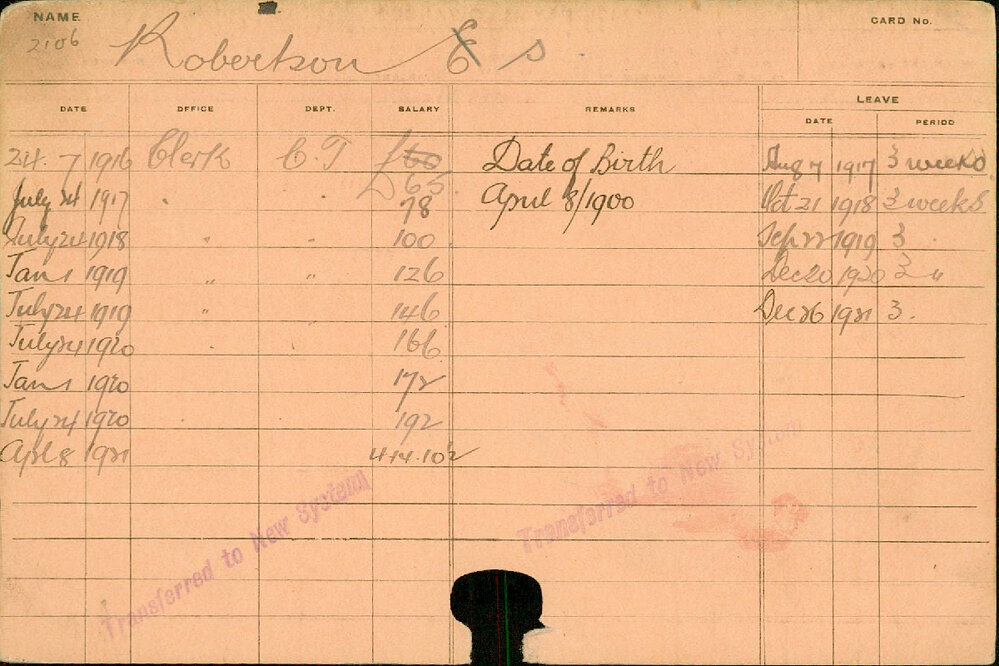 NAME CARD No.
2106 Robertson E S
DATE OFFICE DEPT. SALARY REMARKS LEAVE
DATE PERIOD
24. 7 1916 Clerk C.T £60 Date of Birth Aug 7 1917 3 weeks
65
July 24 1917 " " 78 April 8/1900 Oct 21 1918 3 weeks
July 24 1918 " " 100 Sep 22 1919 3 "
Jan 1 1919 " " 126 Dec 20 1920 3 "
July 24 1919 " 146 Dec 26 1921 3.
July 24 1920 " " 166
Jan 1 1920 172
July 24 1920 192
April 8 1921 4.14.10½
Transferred to New System
Transferred to New System